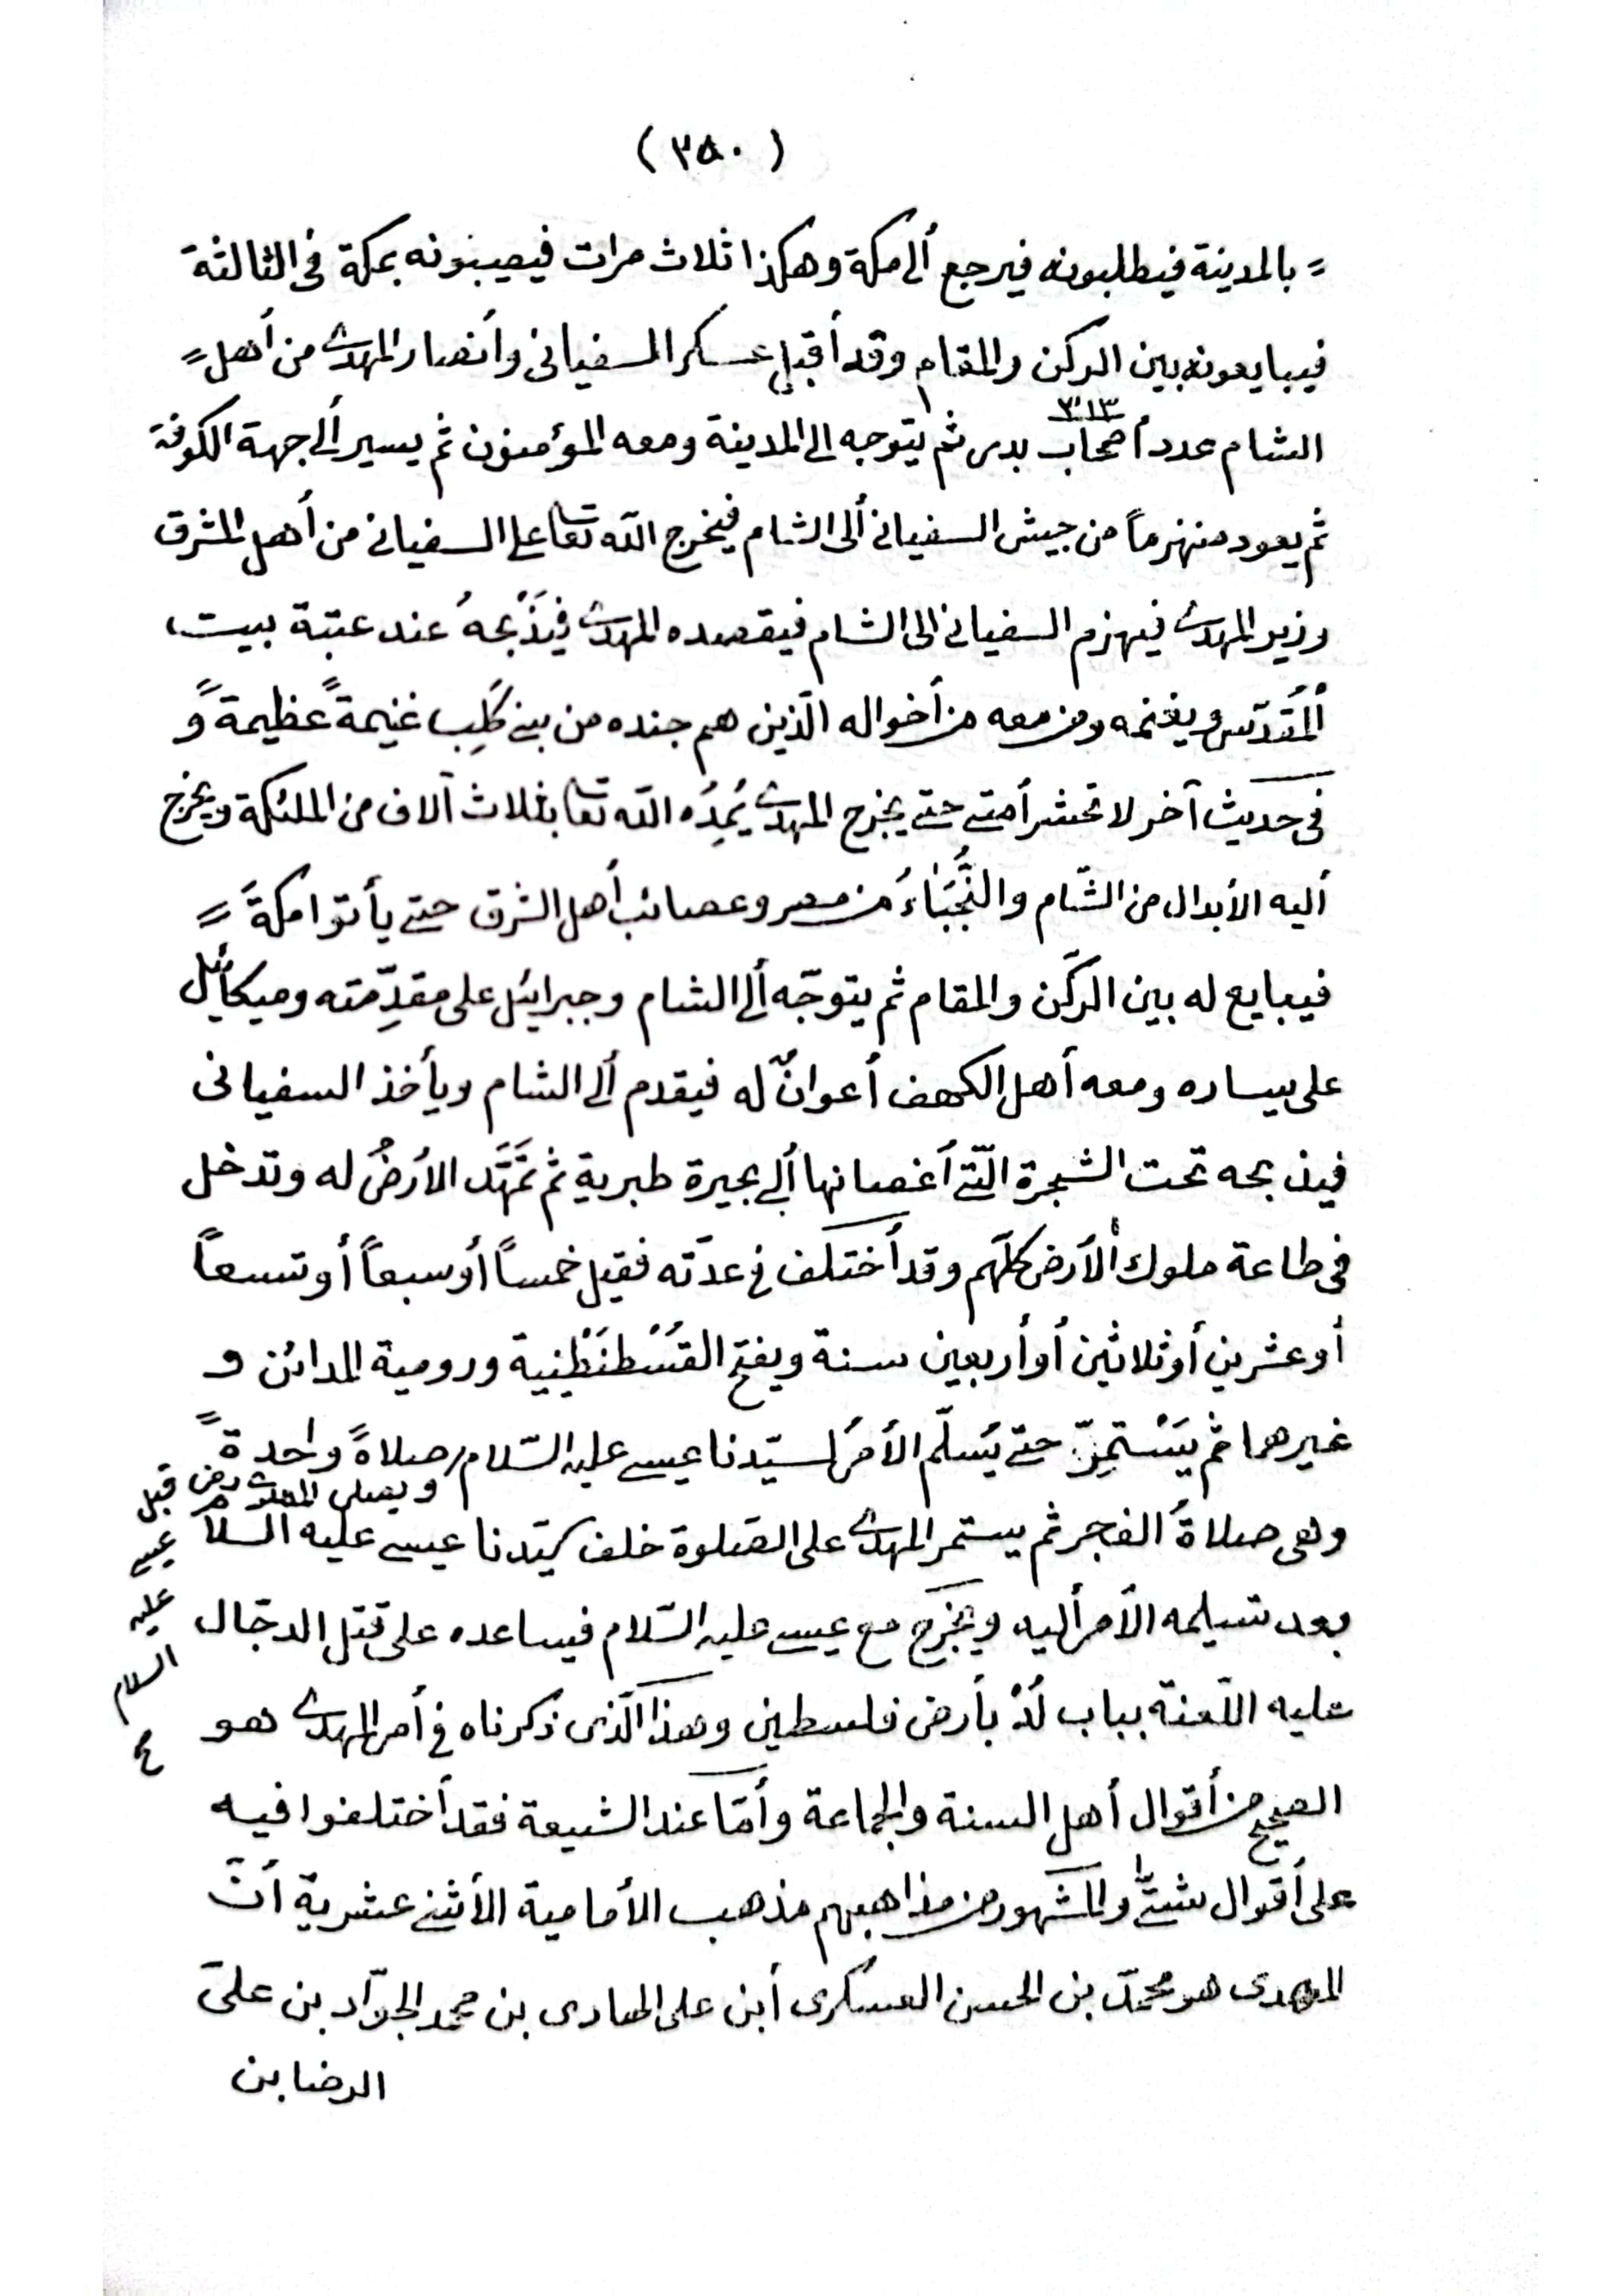 ( ٣٥٠ )
= بالمدينة فيطلبونه فيرجع ألى مكة وهكذا ثلاث مرات فيصيبونه بمكة فى الثالثة
فيبايعونه بين الركن والمقام وقد أقبل عسكر السفيانى وأنصار المهدى من أهل =
٣١٣
الشام عدد أصحاب بدر ثم يتوجه الى المدينة ومعه المؤمنون ثم يسير ألى جهة الكوفة
ثم يعود منهزماً من جيش السفيانى ألى الشام فيخرج الله تعا على السفيانى من أهل المشرق
وزير المهدى فيهزم السفيانى الى الشام فيقصده المهدى فيَذْبحهُ عند عتبة بيت
ألمُقدّس ويغنمه ومن معه من أخواله الّذين هم جنده من بنى كَلِب غنيمةً عظيمةً وَ
فى حديث آخر لا تحشر أمتى حتى يخرج المهدى يُمِدُه الله تعا بثلاث آلاف من الملئكة ويخرج
أليه الأبدال من الشّام والنُّجَبَاءُ من مصر وعصائب أهل الشرق حتى يأتوا مكةَ =
فيبايع له بين الركن والمقام ثم يتوجّه ألى الشام وجبرائيل على مقدِّمته وميكائيل
على يساره ومعه أهل الكهف أعوانٌ له فيقدم ألى الشام ويأخذ السفيانى
فيذبحه تحت الشجرة الّتى أغصانها ألى بحيرة طبرية ثم تَمَهَّد الأرضُ له وتدخل
فى طاعة ملوك ألأرض كلّهم وقد أختلف فى عدّته فقيل خمساً أو سبعاً أو تسعاً
أو عشرين أو ثلاثين أو أربعين سنة ويفتح القُسْطنَطِنِية ورومية المدائن و
غيرهما ثم يَسْتمِرّ حتى يُسلّم الأمرُ لسيّدنا عيسى عليه السّلام صلاةً واحدةً
ويصلى المهدى رض قبل
عيسى
عليه
السلام
وهى صلاةُ الفجر ثم يستمر المهدى على الصلوة خلف سيّدنا عيسى عليه السلام
بعد تسليمه الأمر أليه ويخرج مع عيسى عليه السّلام فيساعده على قتل الدجّال
عليه اللّعنة بباب لُدْ بأرض فلسطين وهذا الّذى ذكرناه فى أمر المهدى هو
الصحيح من أقوال أهل السنة والجماعة وأمّا عند الشيعة فقد أختلفوا فيه
على أقوال شتّى والمشهور من مذاهبهم مذهب الأمامية الأثنى عشرية أنّ
المهدى هو محمّد بن الحسن العسكرى أبن على الهادى بن محمد الجوّاد بن علىّ
الرضا بن